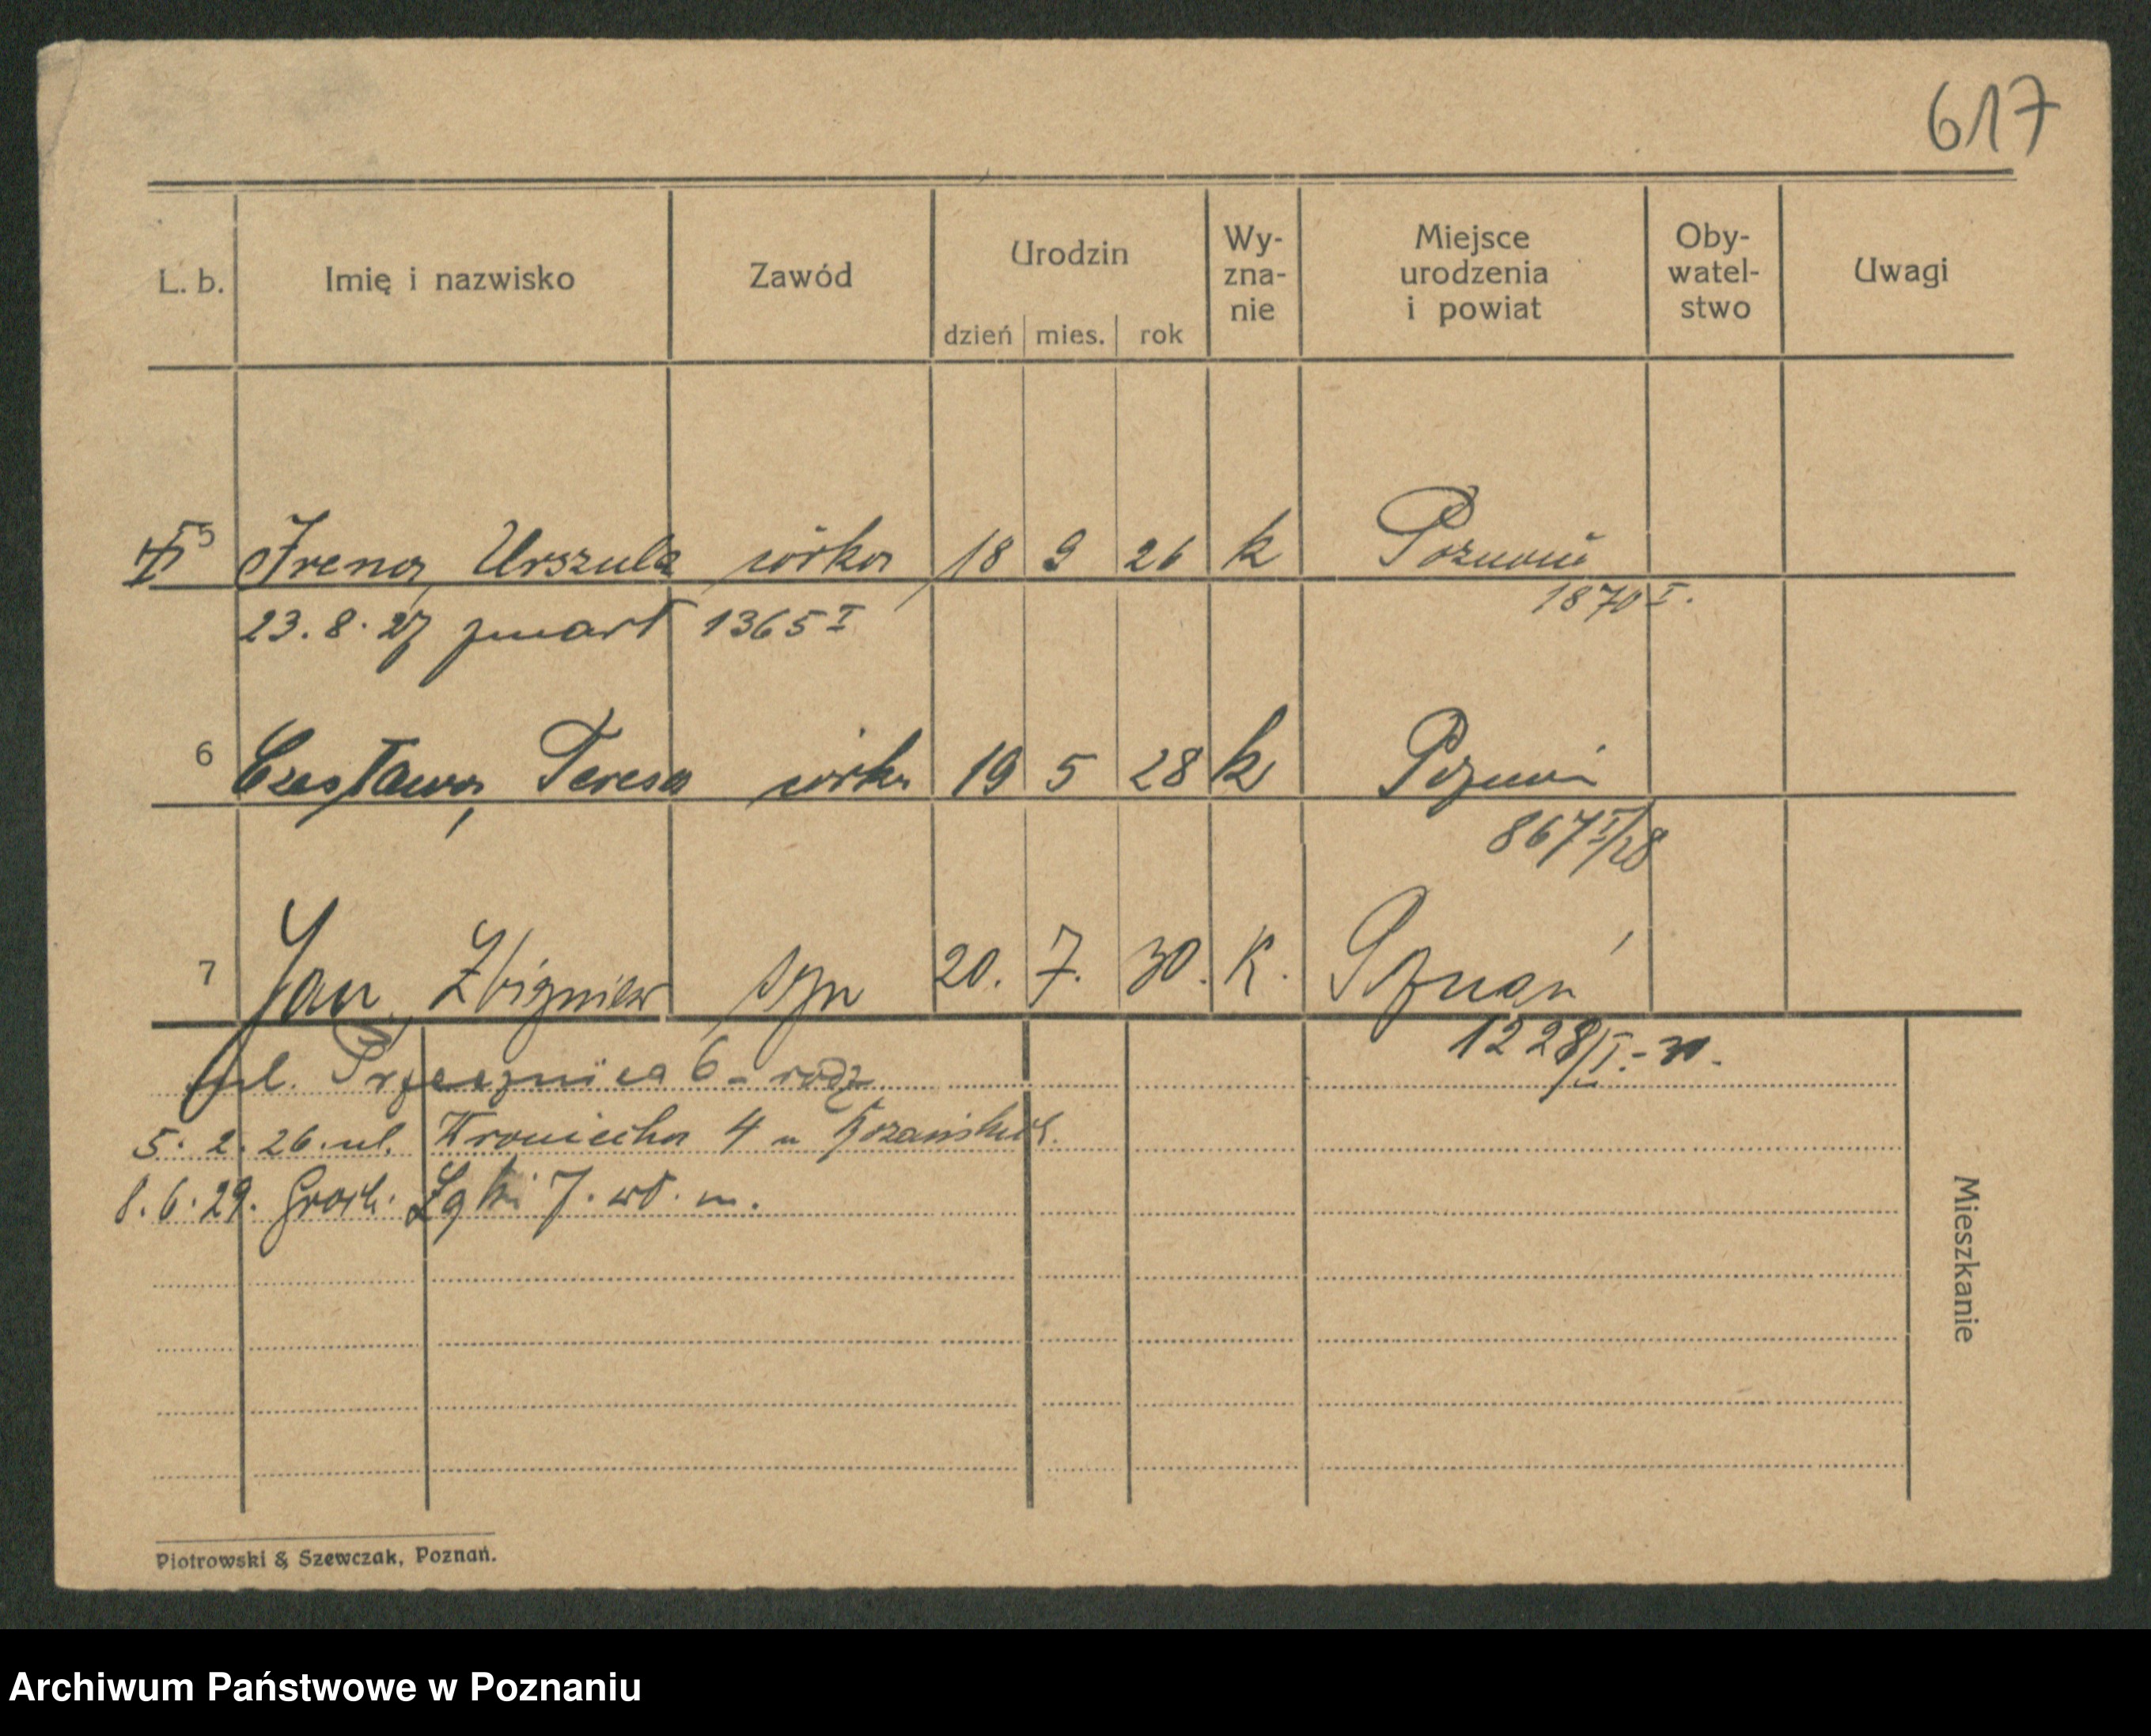 617
L. b. Imię i nazwisko Zawód Urodzin Wy-zna-nie Miejsce urodzenia i powiat Oby-watel-stwo Uwagi
dzień mies. rok
5 Irena, Urszula córka 18 9 26 k Poznań
1870 I.
23.8.27 zmarł 1365 I
6 Czesława, Teresa córka 19 5 28 k Poznań
867 I/28
7 Jan, Zbigniew syn 20. 7. 30. K. Poznań
1228/I.-30.
ul. 6 - rodz.
5. 2. 26. ul. 4 u
8.6.29. Groch. Łąki 7. wł. m.
Mieszkanie
Piotrowski & Szewczak, Poznań.
Archiwum Państwowe w Poznaniu